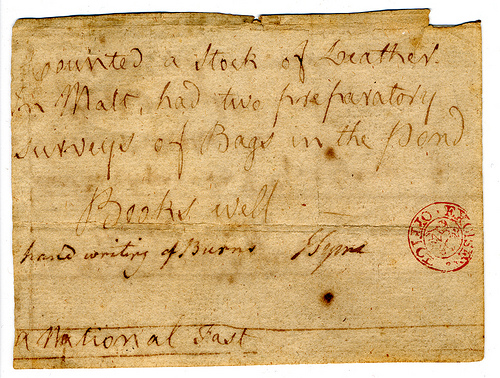 Counted a Stock of Leather.
In Malt, had two preparatory
surveys of Bags in the Pond
Books well
hand writing of Burns J Syme
EXCISE OFFICE
A National Fast